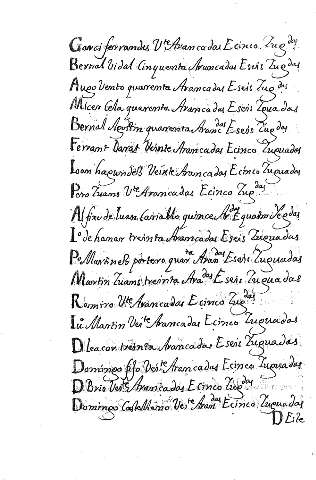 Garci ferrandes Vte Arancadas Ecinco. Zugdas
Bernal Vidal Cinquenta Arancadas Eseis Zugdas
Augo Vento quarenta Arancadas Eseis Zugdas
Micer Cela quarenta Arancadas Eseis Zguadas
Bernal Agustin quarenta Arandas Eseis Zugdas
Ferrant Veinte Arancadas Ecinco Zuguadas
Veinte Arancadas Ecinco Zuguadas
Pero Juans Vte Arancadas Ecinco Zugdas
de Juan quince Ardas Equatro Yogdas
Lo de treinta Arancadas Eseis Zuguadas
Po Martines portero quarta Arandas Eseis Zuguadas
Martin Juans treinta Aradas Eseis Zuguadas
Romiro Vte Arancadas Ecinco Zugdas
Lu Martin Veite Arancadas Ecinco Zuguadas
D treinta Arancadas Eseis Zuguadas
Domingo fijo Veite Arancadas Ecinco Zuguadas
D Bris Veite Arancadas Ecinco Zugdas
Domingo Castellano Veite Arandas Ecinco Zuguadas
D Eite